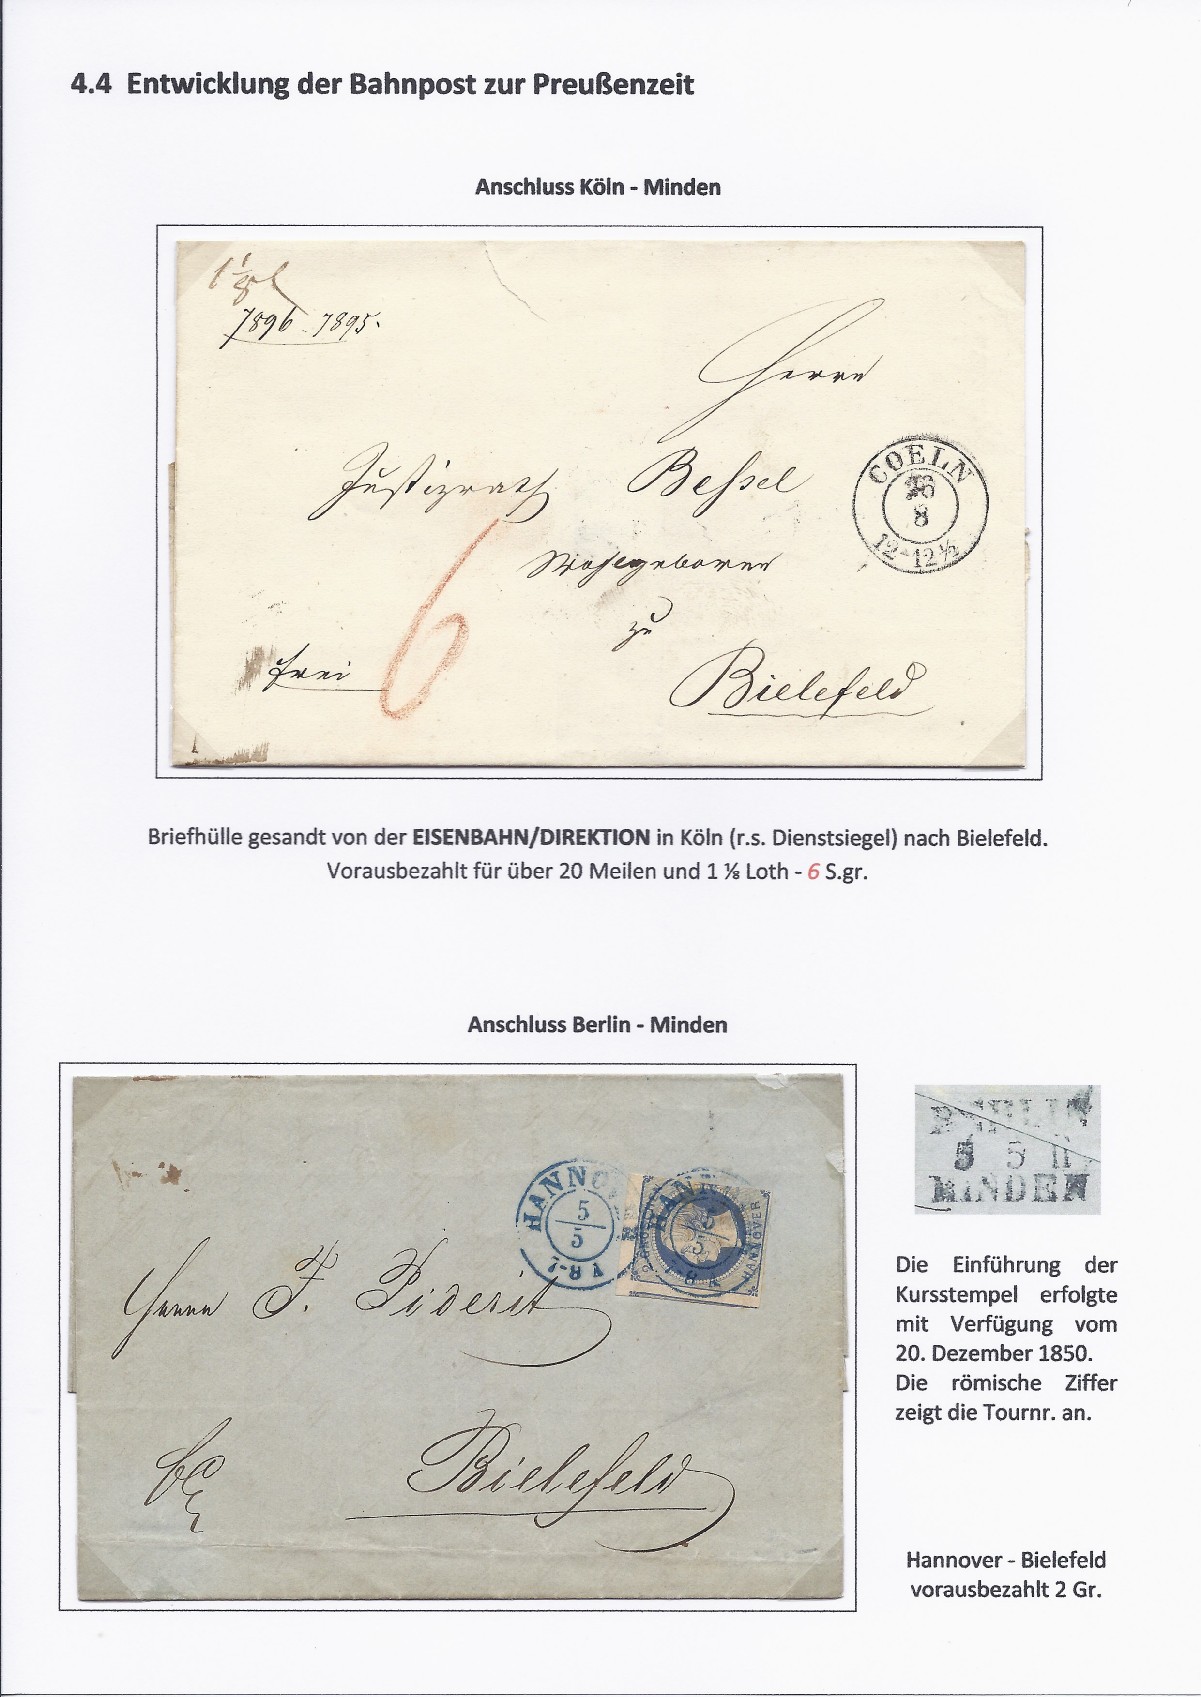 4.4 Entwicklung der Bahnpost zur Preußenzeit
Anschluss Köln - Minden
7896 7895.
Herrn
Justizrath Bessel
Wohlgeboren
zu
Bielefeld
frei
6
COELN
8
12-12½
Briefhülle gesandt von der EISENBAHN/DIREKTION in Köln (r.s. Dienstsiegel) nach Bielefeld.
Vorausbezahlt für über 20 Meilen und 1 ⅛ Loth - 6 S.gr.
Anschluss Berlin - Minden
HANNO
5
5
7-8 A
HANNOVER
Herrn F. Piderit
Bielefeld
BERLIN
5 5 II
MINDEN
Die Einführung der
Kursstempel erfolgte
mit Verfügung vom
20. Dezember 1850.
Die römische Ziffer
zeigt die Tournr. an.
Hannover - Bielefeld
vorausbezahlt 2 Gr.